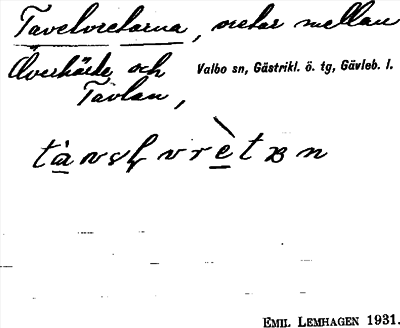 Tavelvretarna, vretar mellan
Överhärde och Valbo sn, Gästrikl. ö. tg, Gävleb. l.
Tavlan,
EMIL LEMHAGEN 1931.